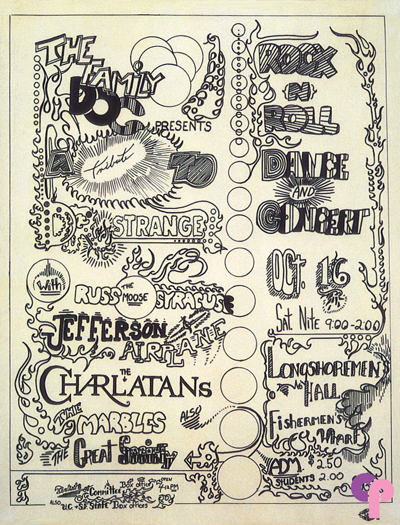 THE
FAMILY
DOG
PRESENTS
A
Tribute
TO
DR.
STRANGE
With
RUSS THE MOOSE SYRACUSE
JEFFERSON
AIRPLANE
THE
CHARLATANS
THE
MARBLES
ALSO
THE GREAT Society
ROCK
N
ROLL
DANCE
AND
CONCERT
OCT. 16
Sat Nite 9:00-2:00
LONGSHOREMENS
HALL
FISHERMENS
Wharf
ADM. $2.50
STUDENTS 2.00
Committee
BOX OFFICE
OPEN
ALSO U.C. + S.F. STATE BOX OFFICES
CP